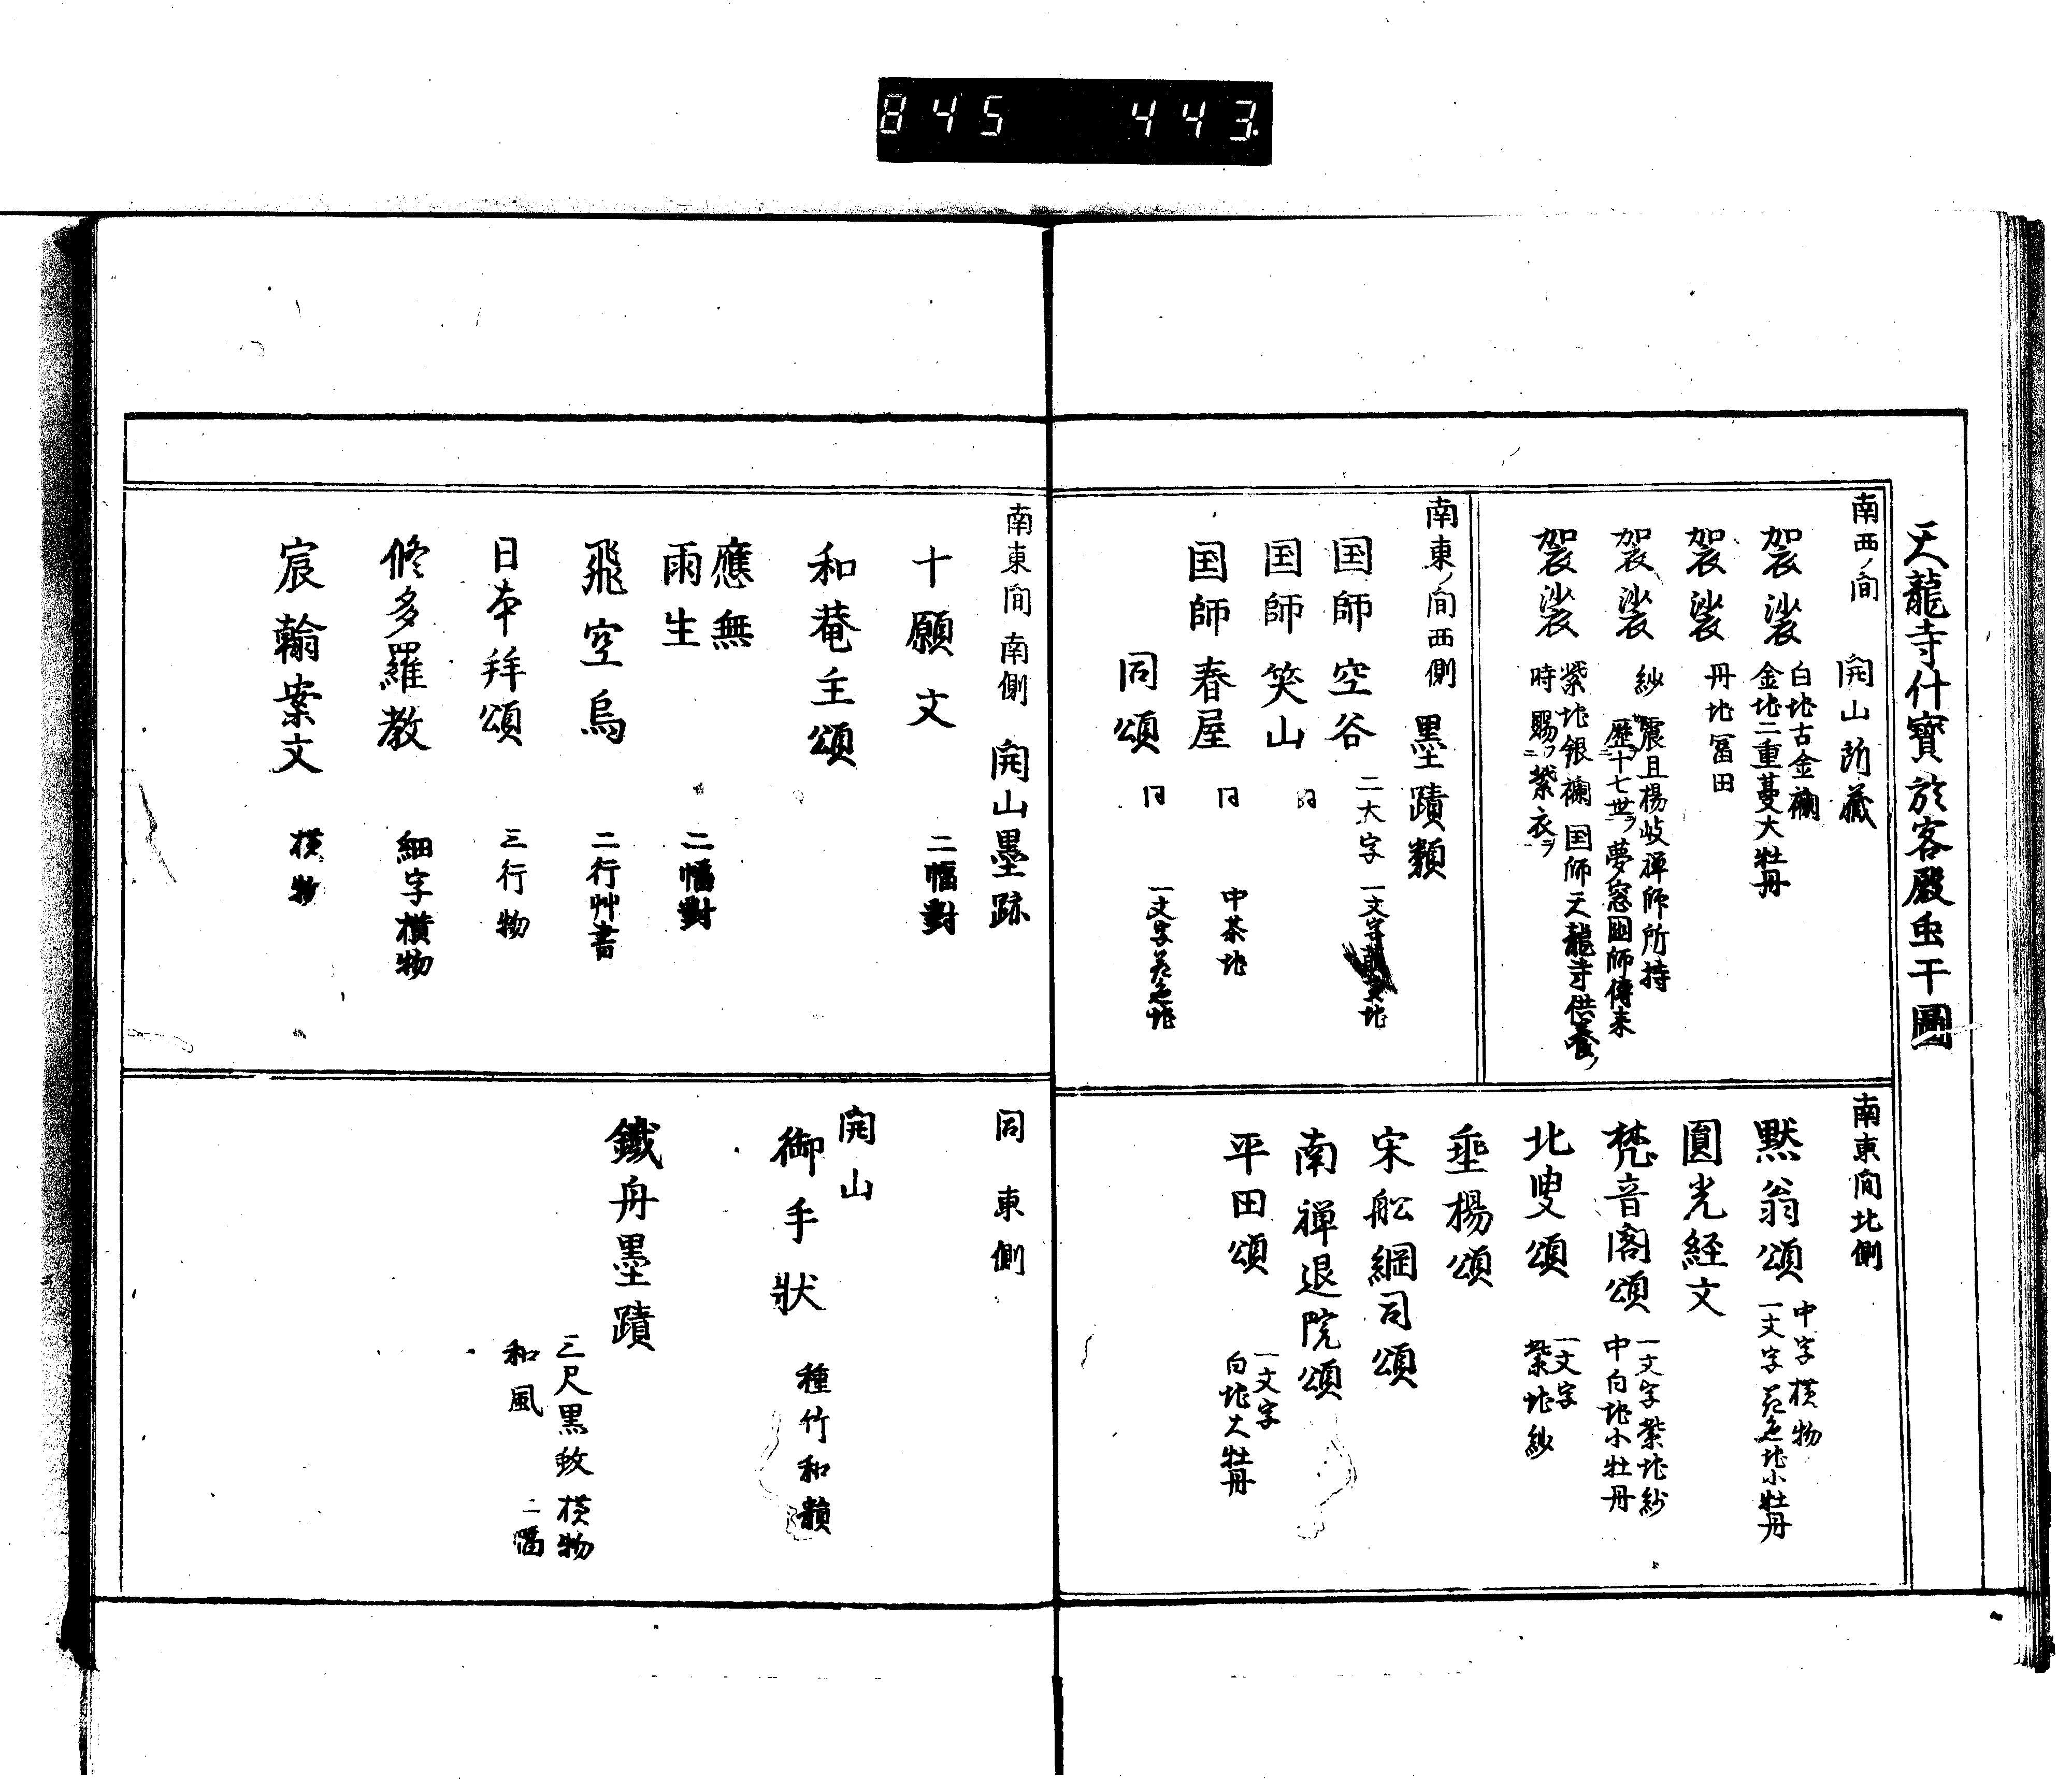 845 443
天龍寺什寳於客殿虫干圖
南西ノ間 開山所藏
袈裟 白地古金襴
金地二重蔓大牡丹
袈裟 丹地冨田
袈裟 紗 震旦楊岐禅師所持
歴十七世ヲ夢窓國師傳来
袈裟 紫地銀襴 国師天龍寺供養ノ
時賜フ紫衣ヲ
南東ノ間西側 墨蹟類
国師 空谷 二大字 一文字
国師 笑山 同
国師 春屋 同 中茶地
同頌 同 一文字花色地
南東間北側
黙翁頌 中字横物
一文字花色地小牡丹
圓光経文
梵音閣頌 一文字紫地紗
中白地小牡丹
北叟頌 一文字
紫地紗
垂楊頌
宋舩綱司頌
南禅退院頌
平田頌 一文字
白地大牡丹
南東間南側 開山墨跡
十願文 二幅對
和菴主頌
應無
雨生 二幅對
飛空烏 二行艸書
日本拜頌 三行物
修多羅教 細字横物
宸翰案文 横物
同東側
開山
御手状 種竹和韻
鐵舟墨蹟
三尺黒蚊 横物
和風 二幅